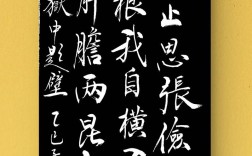 止思張儉
根我自橫刀
肝膽兩昆
獄中題壁 乙巳